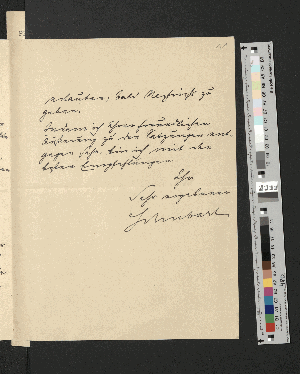 erlauben, bald Nachricht zu
geben.
Indem ich Ihrer freundlichen
Äußerung zu den Satzungen ent-
gegen sehe, bin ich mit den
besten Empfehlungen
Ihr
Sehr ergebener